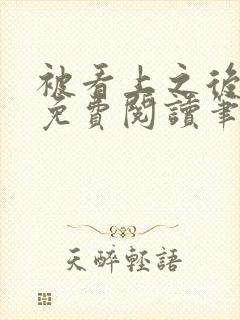 被看上之後
免費閱讀筆
天醉輕語